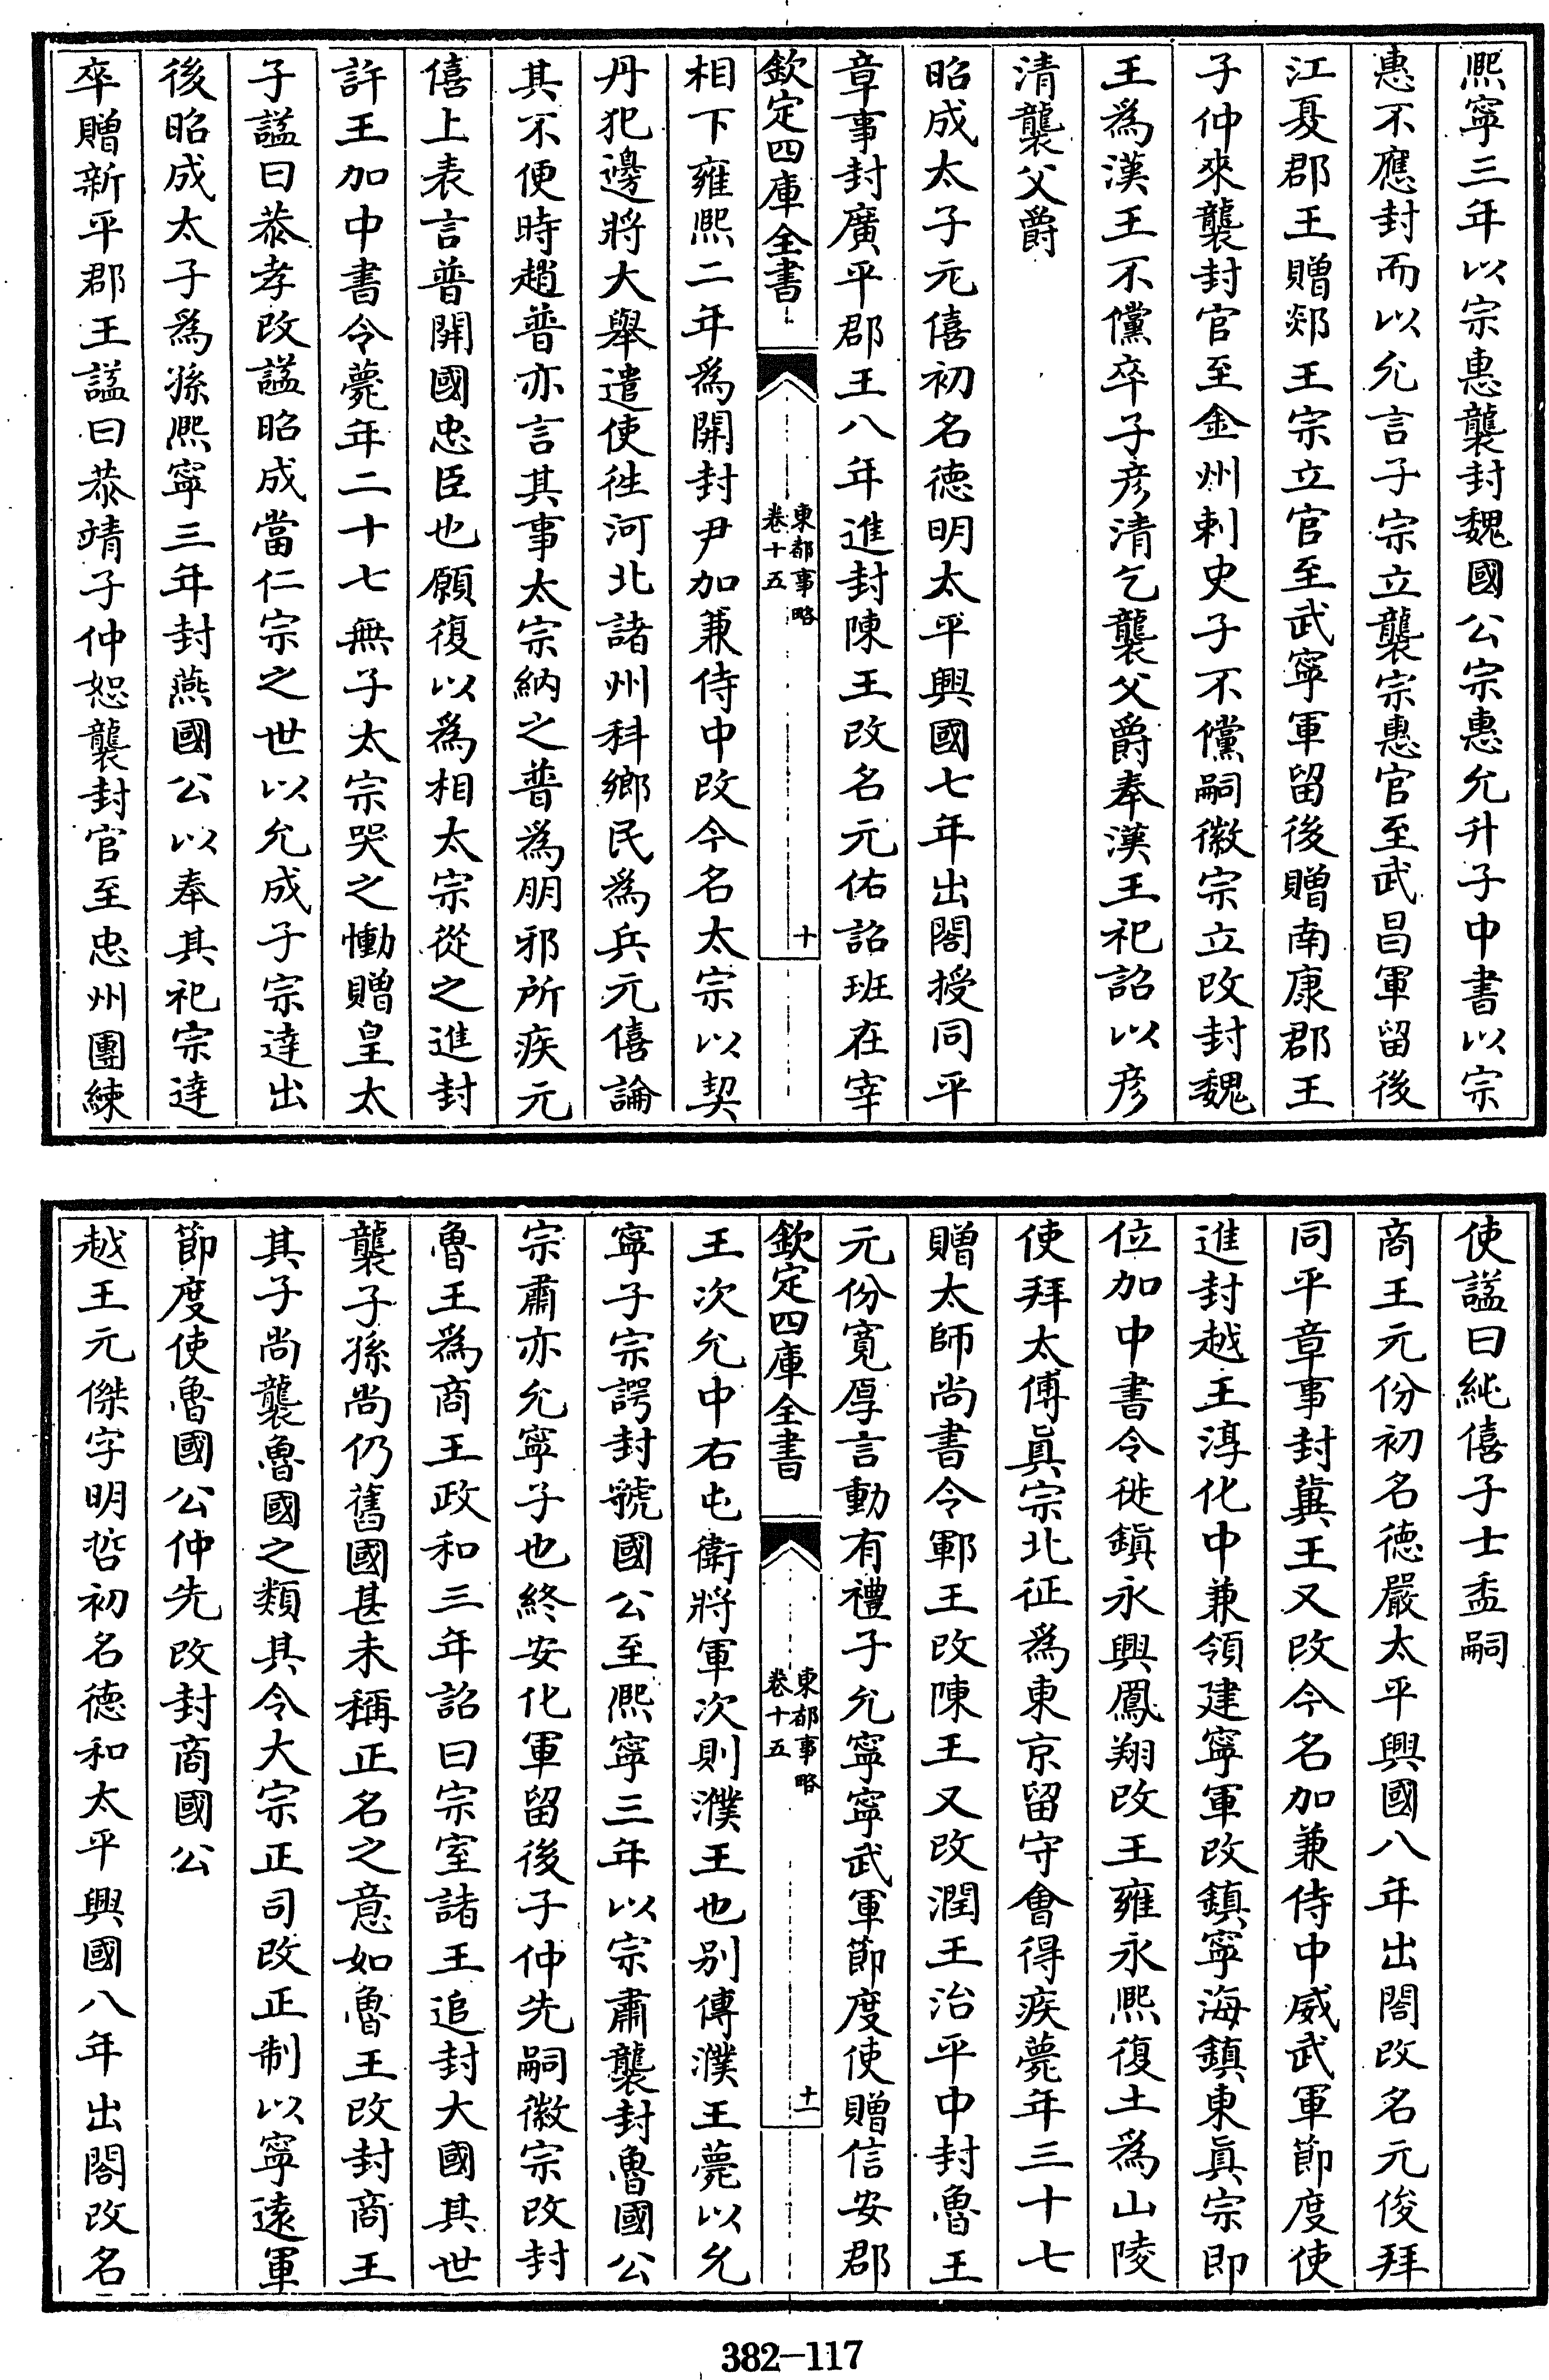 熙寧三年以宗惠襲封魏國公宗惠允升子中書以宗
惠不應封而以允言子宗立襲宗惠官至武昌軍留後
江夏郡王贈郯王宗立官至武寧軍留後贈南康郡王
子仲來襲封官至金州刺史子不儻嗣徽宗立改封魏
王為漢王不儻卒子彦清乞襲父爵奉漢王祀詔以彦
清襲父爵
昭成太子元僖初名德明太平興國七年出閤授同平
章事封廣平郡王八年進封陳王改名元佑詔班在宰
欽定四庫全書
東都事略
卷十五
十
相下雍熙二年為開封尹加兼侍中改今名太宗以契
丹犯邊將大舉遣使徃河北諸州科鄉民為兵元僖論
其不便時趙普亦言其事太宗納之普為朋邪所疾元
僖上表言普開國忠臣也願復以為相太宗從之進封
許王加中書令薨年二十七無子太宗哭之慟贈皇太
子諡曰恭孝改諡昭成當仁宗之世以允成子宗達出
後昭成太子為孫熙寧三年封燕國公以奉其祀宗達
卒贈新平郡王諡曰恭靖子仲恕襲封官至忠州團練
使諡曰純僖子士盉嗣
商王元份初名德嚴太平興國八年出閤改名元俊拜
同平章事封冀王又改今名加兼侍中威武軍節度使
進封越王淳化中兼領建寧軍改鎮寧海鎮東真宗即
位加中書令徙鎮永興鳳翔改王雍永熙復土為山陵
使拜太傅真宗北征為東京留守會得疾薨年三十七
贈太師尚書令鄆王改陳王又改潤王治平中封魯王
元份寛厚言動有禮子允寧寧武軍節度使贈信安郡
欽定四庫全書
東都事略
卷十五
十一
王次允中右屯衛將軍次則濮王也别傳濮王薨以允
寧子宗諤封虢國公至熙寧三年以宗肅襲封魯國公
宗肅亦允寧子也終安化軍留後子仲先嗣徽宗改封
魯王為商王政和三年詔曰宗室諸王追封大國其世
襲子孫尚仍舊國甚未稱正名之意如魯王改封商王
其子尚襲魯國之類其令大宗正司改正制以寧遠軍
節度使魯國公仲先改封商國公
越王元傑字明哲初名德和太平興國八年出閤改名
382-117